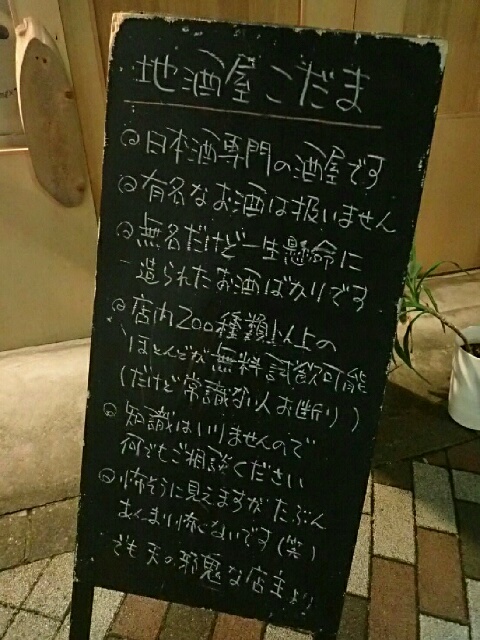 地酒屋こだま
◎日本酒専門の酒屋です
◎有名なお酒は扱いません
◎無名だけど一生懸命に
造られたお酒ばかりです
◎店内200種類以上の
ほとんどが無料試飲可能
(だけど常識ない人お断り)
◎知識はいりませんので
何でもご相談ください
◎怖そうに見えますがたぶん
あんまり怖くないです(笑)
でも天の邪鬼な店主より